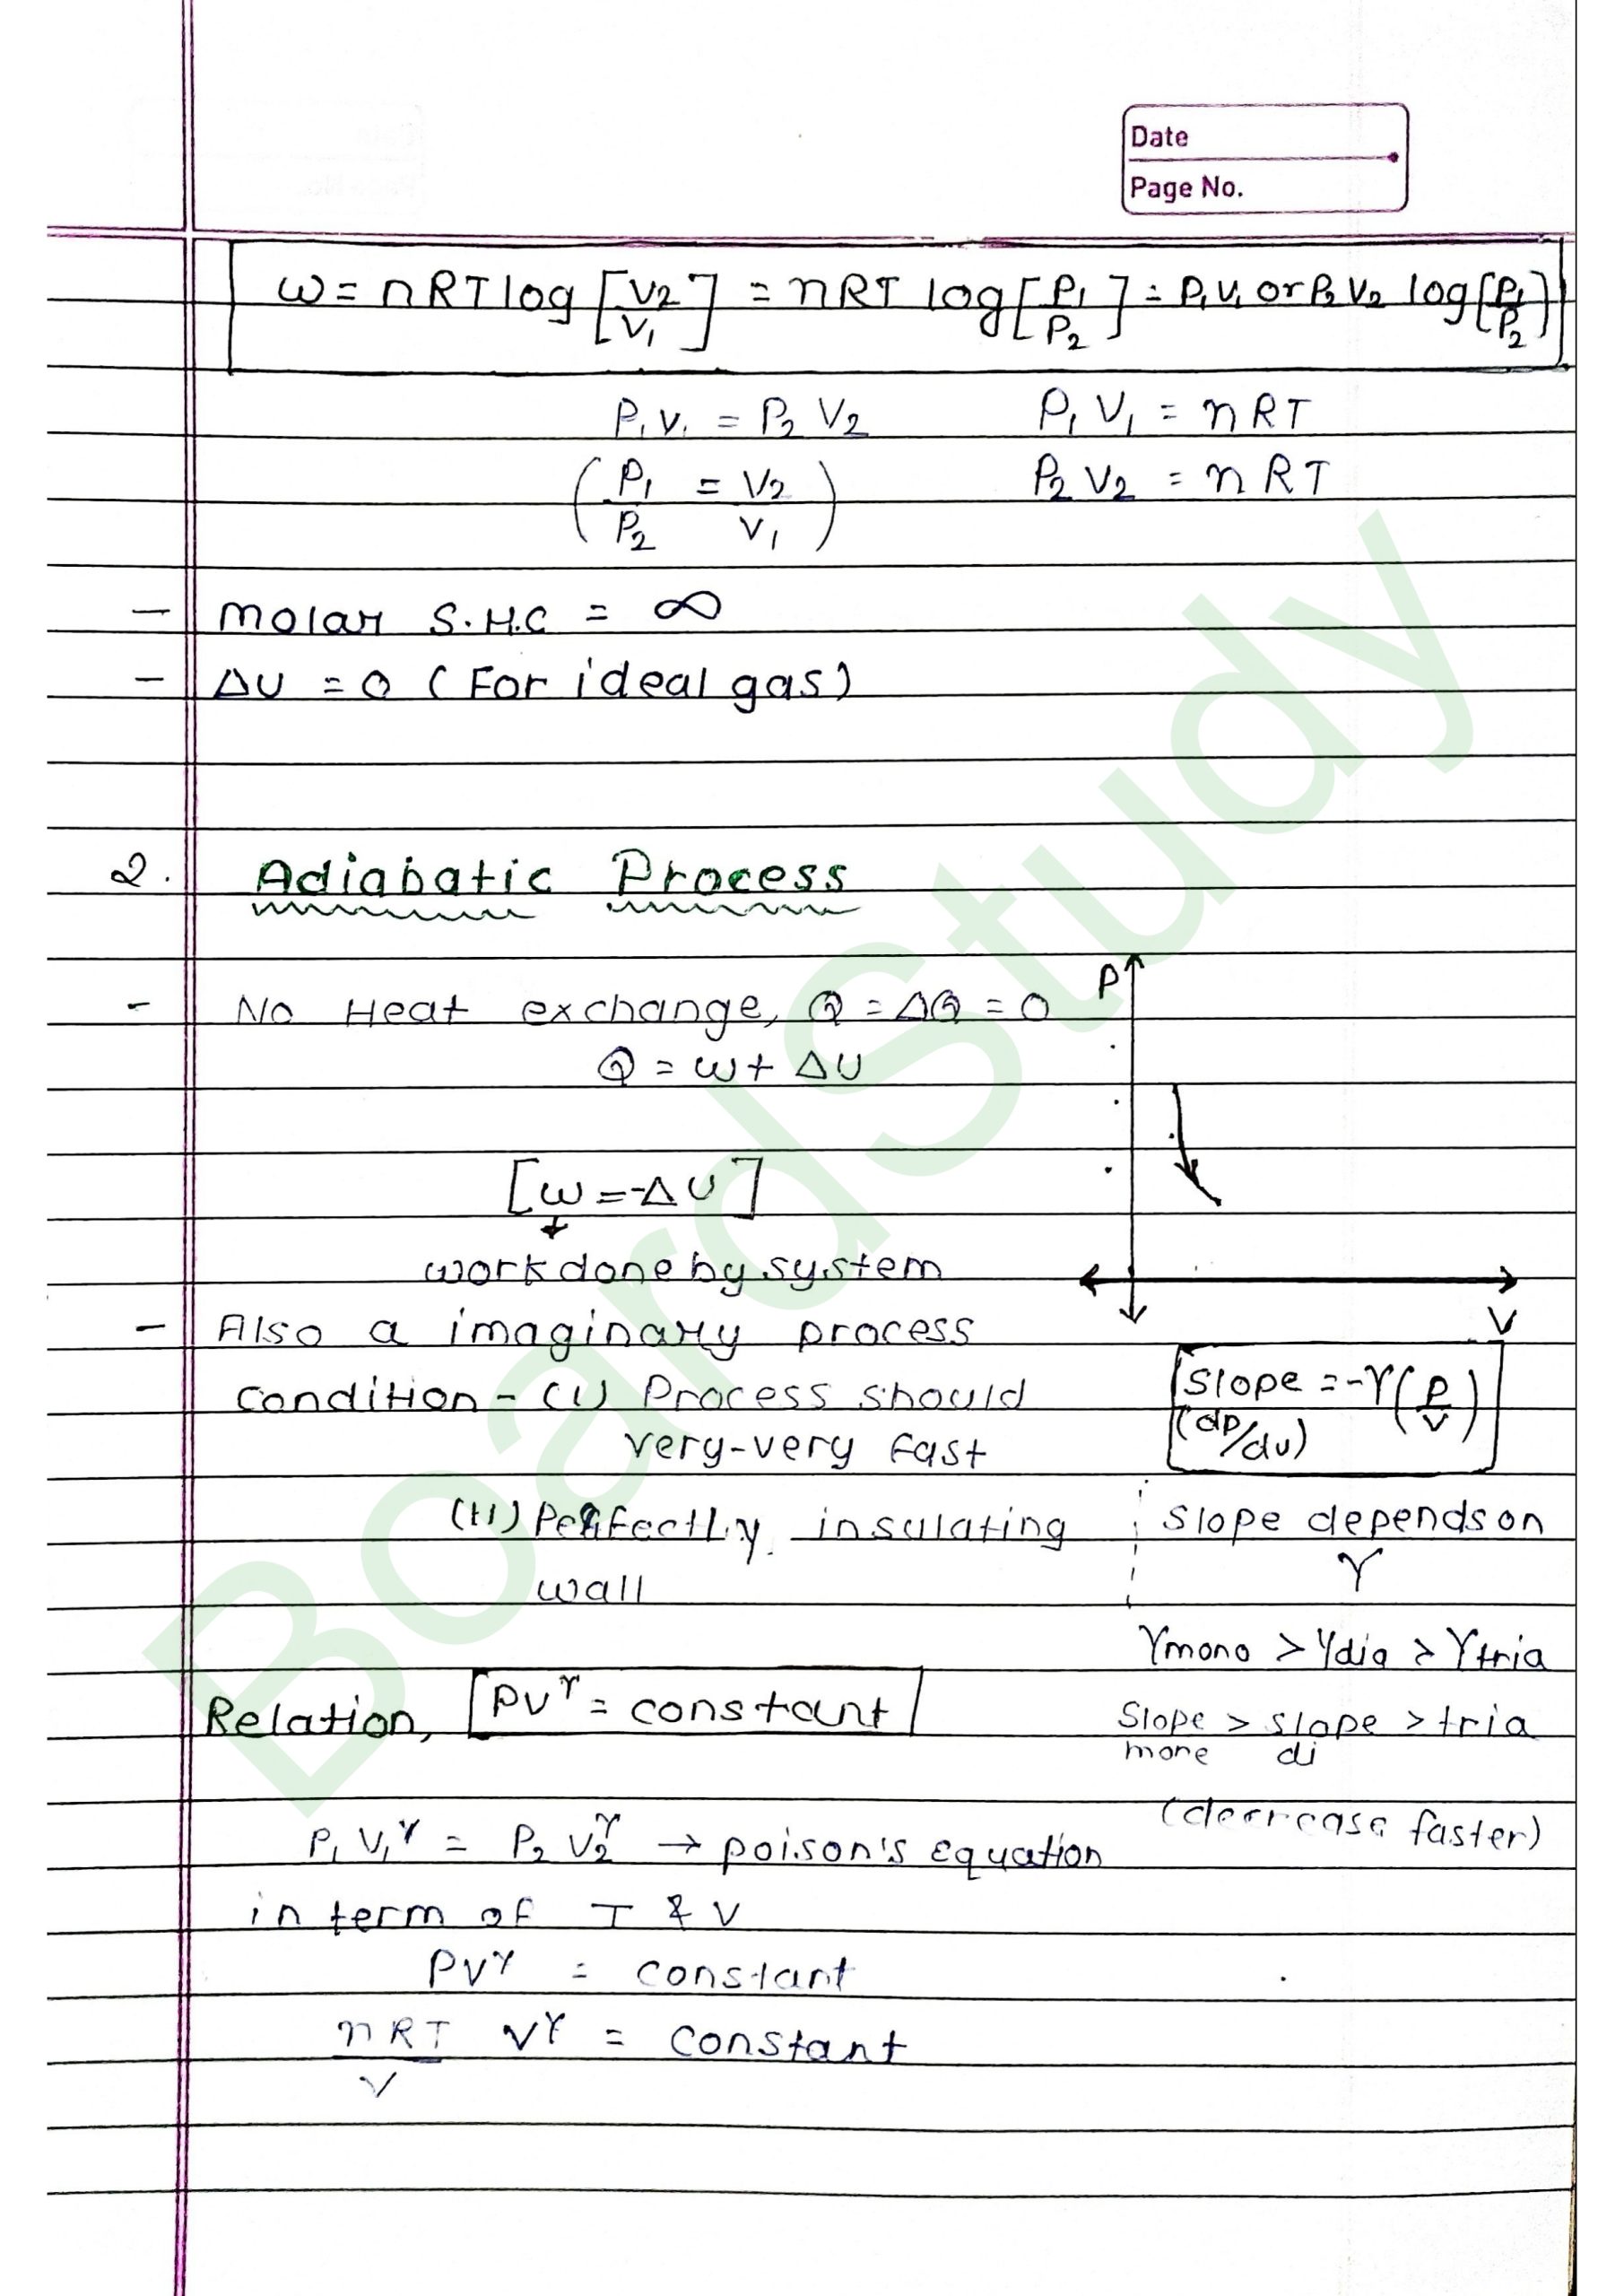 Date
Page No.
ω = nRT log [V2/V1] = nRT log [P1/P2] = P1V1 or P2V2 log [P1/P2]
P1V1 = P2V2    P1V1 = nRT
(P1/P2 = V2/V1)    P2V2 = nRT
- Molar S.H.C = ∞
- ΔU = 0 (For ideal gas)
2. Adiabatic Process
- No Heat exchange, Q = ΔQ = 0
P
Q = ω + ΔU
[ω = -ΔU]
work done by system
V
- Also a imaginary process
condition - (i) Process should
very-very fast
Slope = -γ(P/V)
(dp/dv)
(ii) Perfectly insulating
wall
Slope depends on
γ
γmono > γdia > γtria
Relation, PVγ = constant
Slope > slope > tria
more di
(decrease faster)
P1V1γ = P2V2γ → poison's equation
in term of T & V
PVγ = constant
nRT/V Vγ = constant
BoardStudy